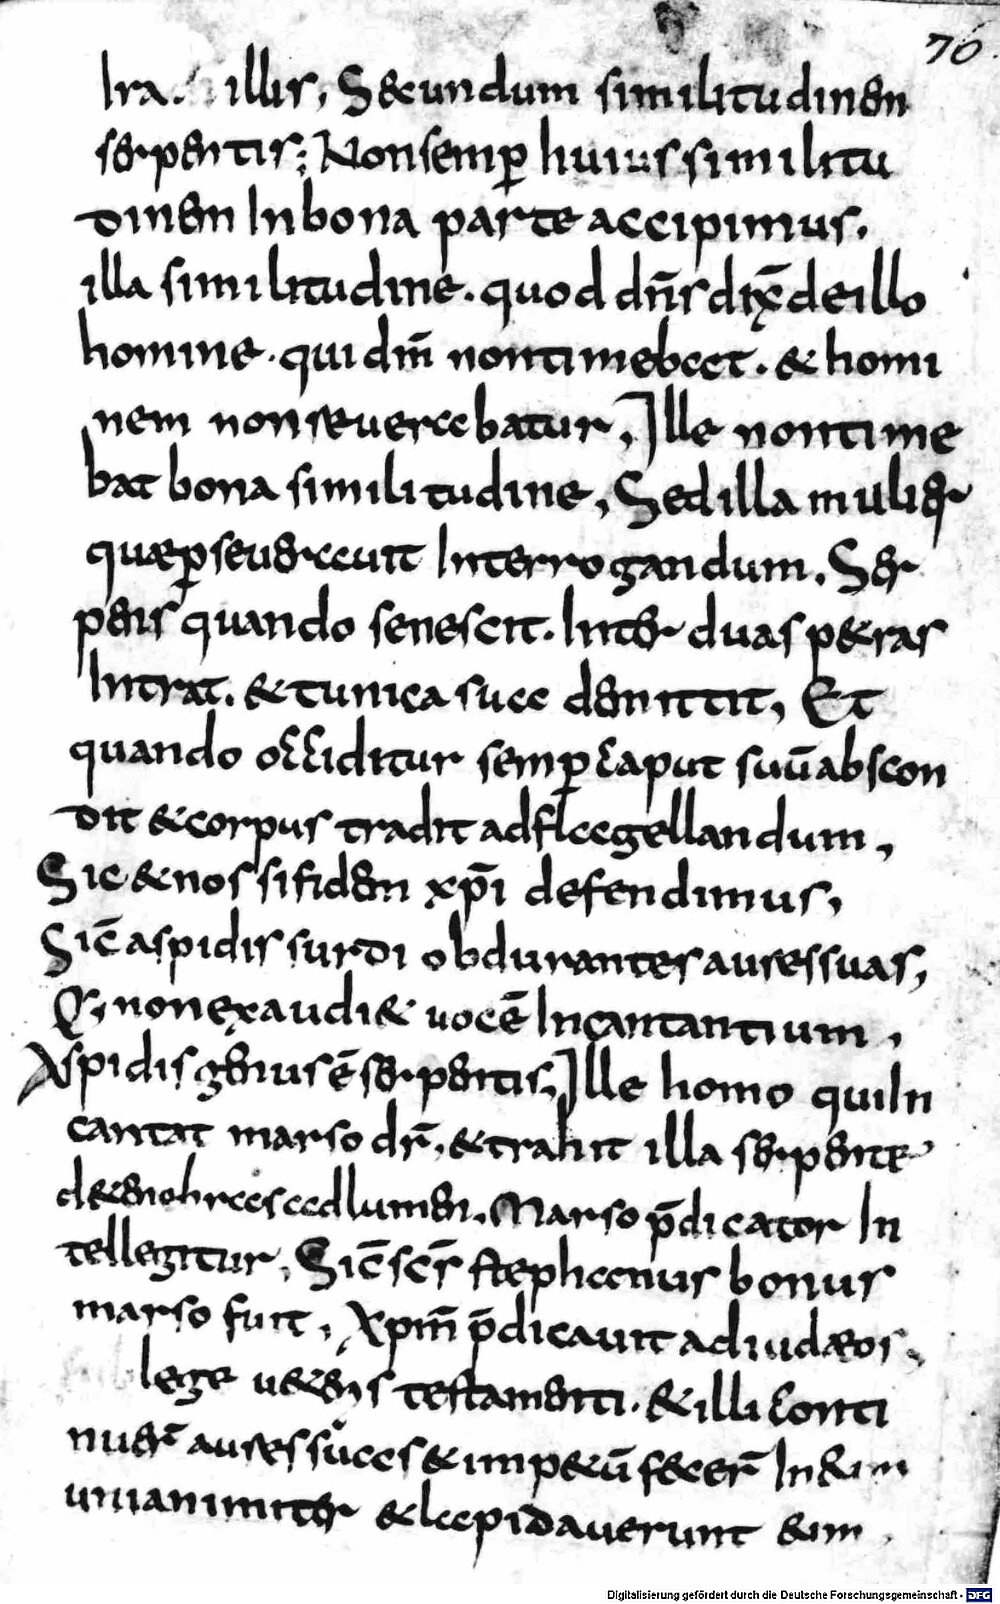 70
Ira illis, Secundum similitudinem
serpentis; Non semper huius similitu
dinem In bona parte accipimus.
illa similitudine. quod dn̄s dix̄ de illo
homine. qui dm̄ non timebat. & homi
nem non reuerebatur, Ille non time
bat bona similitudine, Sed illa mulier
quæ ꝑseuerauit Interrogandum. Ser
pens quando senescit. Inter duas petras
Intrat. & tunica sua demittit, Et
quando occiditur semꝑ caput suū abscon
dit & corpus tradit ad flagellandum,
Sic & nos si fidem xp̄i defendimus,
Sic̄ aspidis surdi obdurantes aures suas,
Q, non exaudi& uocē Incantantium,
Aspidis genus ē serpentis, Ille homo qui In
cantat marso dr̄, & trahit illa serpente
de tenebras ad lumen. Marso p̄dicator In
tellegitur, Sic̄ sc̄s stephanus bonus
marso fuit, Xpm̄ p̄dicauit ad iudæos,
lege ueteris testamenti. & illi conti
nuer̄ aures suas & impetū fecer̄ In eum
unianimiter & lapidauerunt eum,
Digitalisierung gefördert durch die Deutsche Forschungsgemeinschaft - DFG